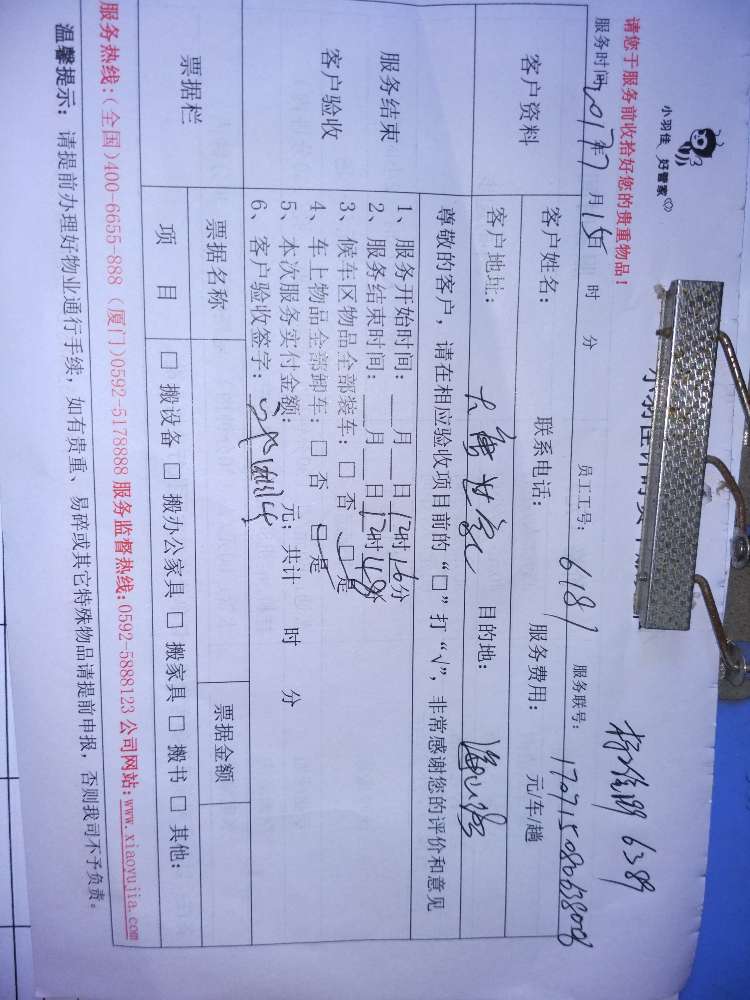 小羽佳 好管家
请您于服务前收拾好您的贵重物品！
服务时间 2017年7月15日 时 分 员工工号： 6187 服务联号：
6389
客户资料 客户姓名： 联系电话： 服务费用： 元/车/趟
客户地址： 目的地：
尊敬的客户，请在相应验收项目前的“□”打“√”，非常感谢您的评价和意见
服务结束
客户验收
1、服务开始时间：__月__日12时16分
2、服务结束时间：__月__日12时48分
3、候车区物品全部装车：□ 否 □ 是
4、车上物品全部卸车：□ 否 □ 是
5、本次服务实付金额： 元；共计 时 分
6、客户验收签字：
票据栏 票据名称 票据金额
项 目 □ 搬设备 □ 搬办公家具 □ 搬家具 □ 搬书 □ 其他：
服务热线：(全国)400-6655-888 (厦门)0592-5178888 服务监督热线：0592-5888123 公司网站：www.xiaoyujia.com
温馨提示：请提前办理好物业通行手续，如有贵重、易碎或其它特殊物品请提前申报，否则我司不予负责。